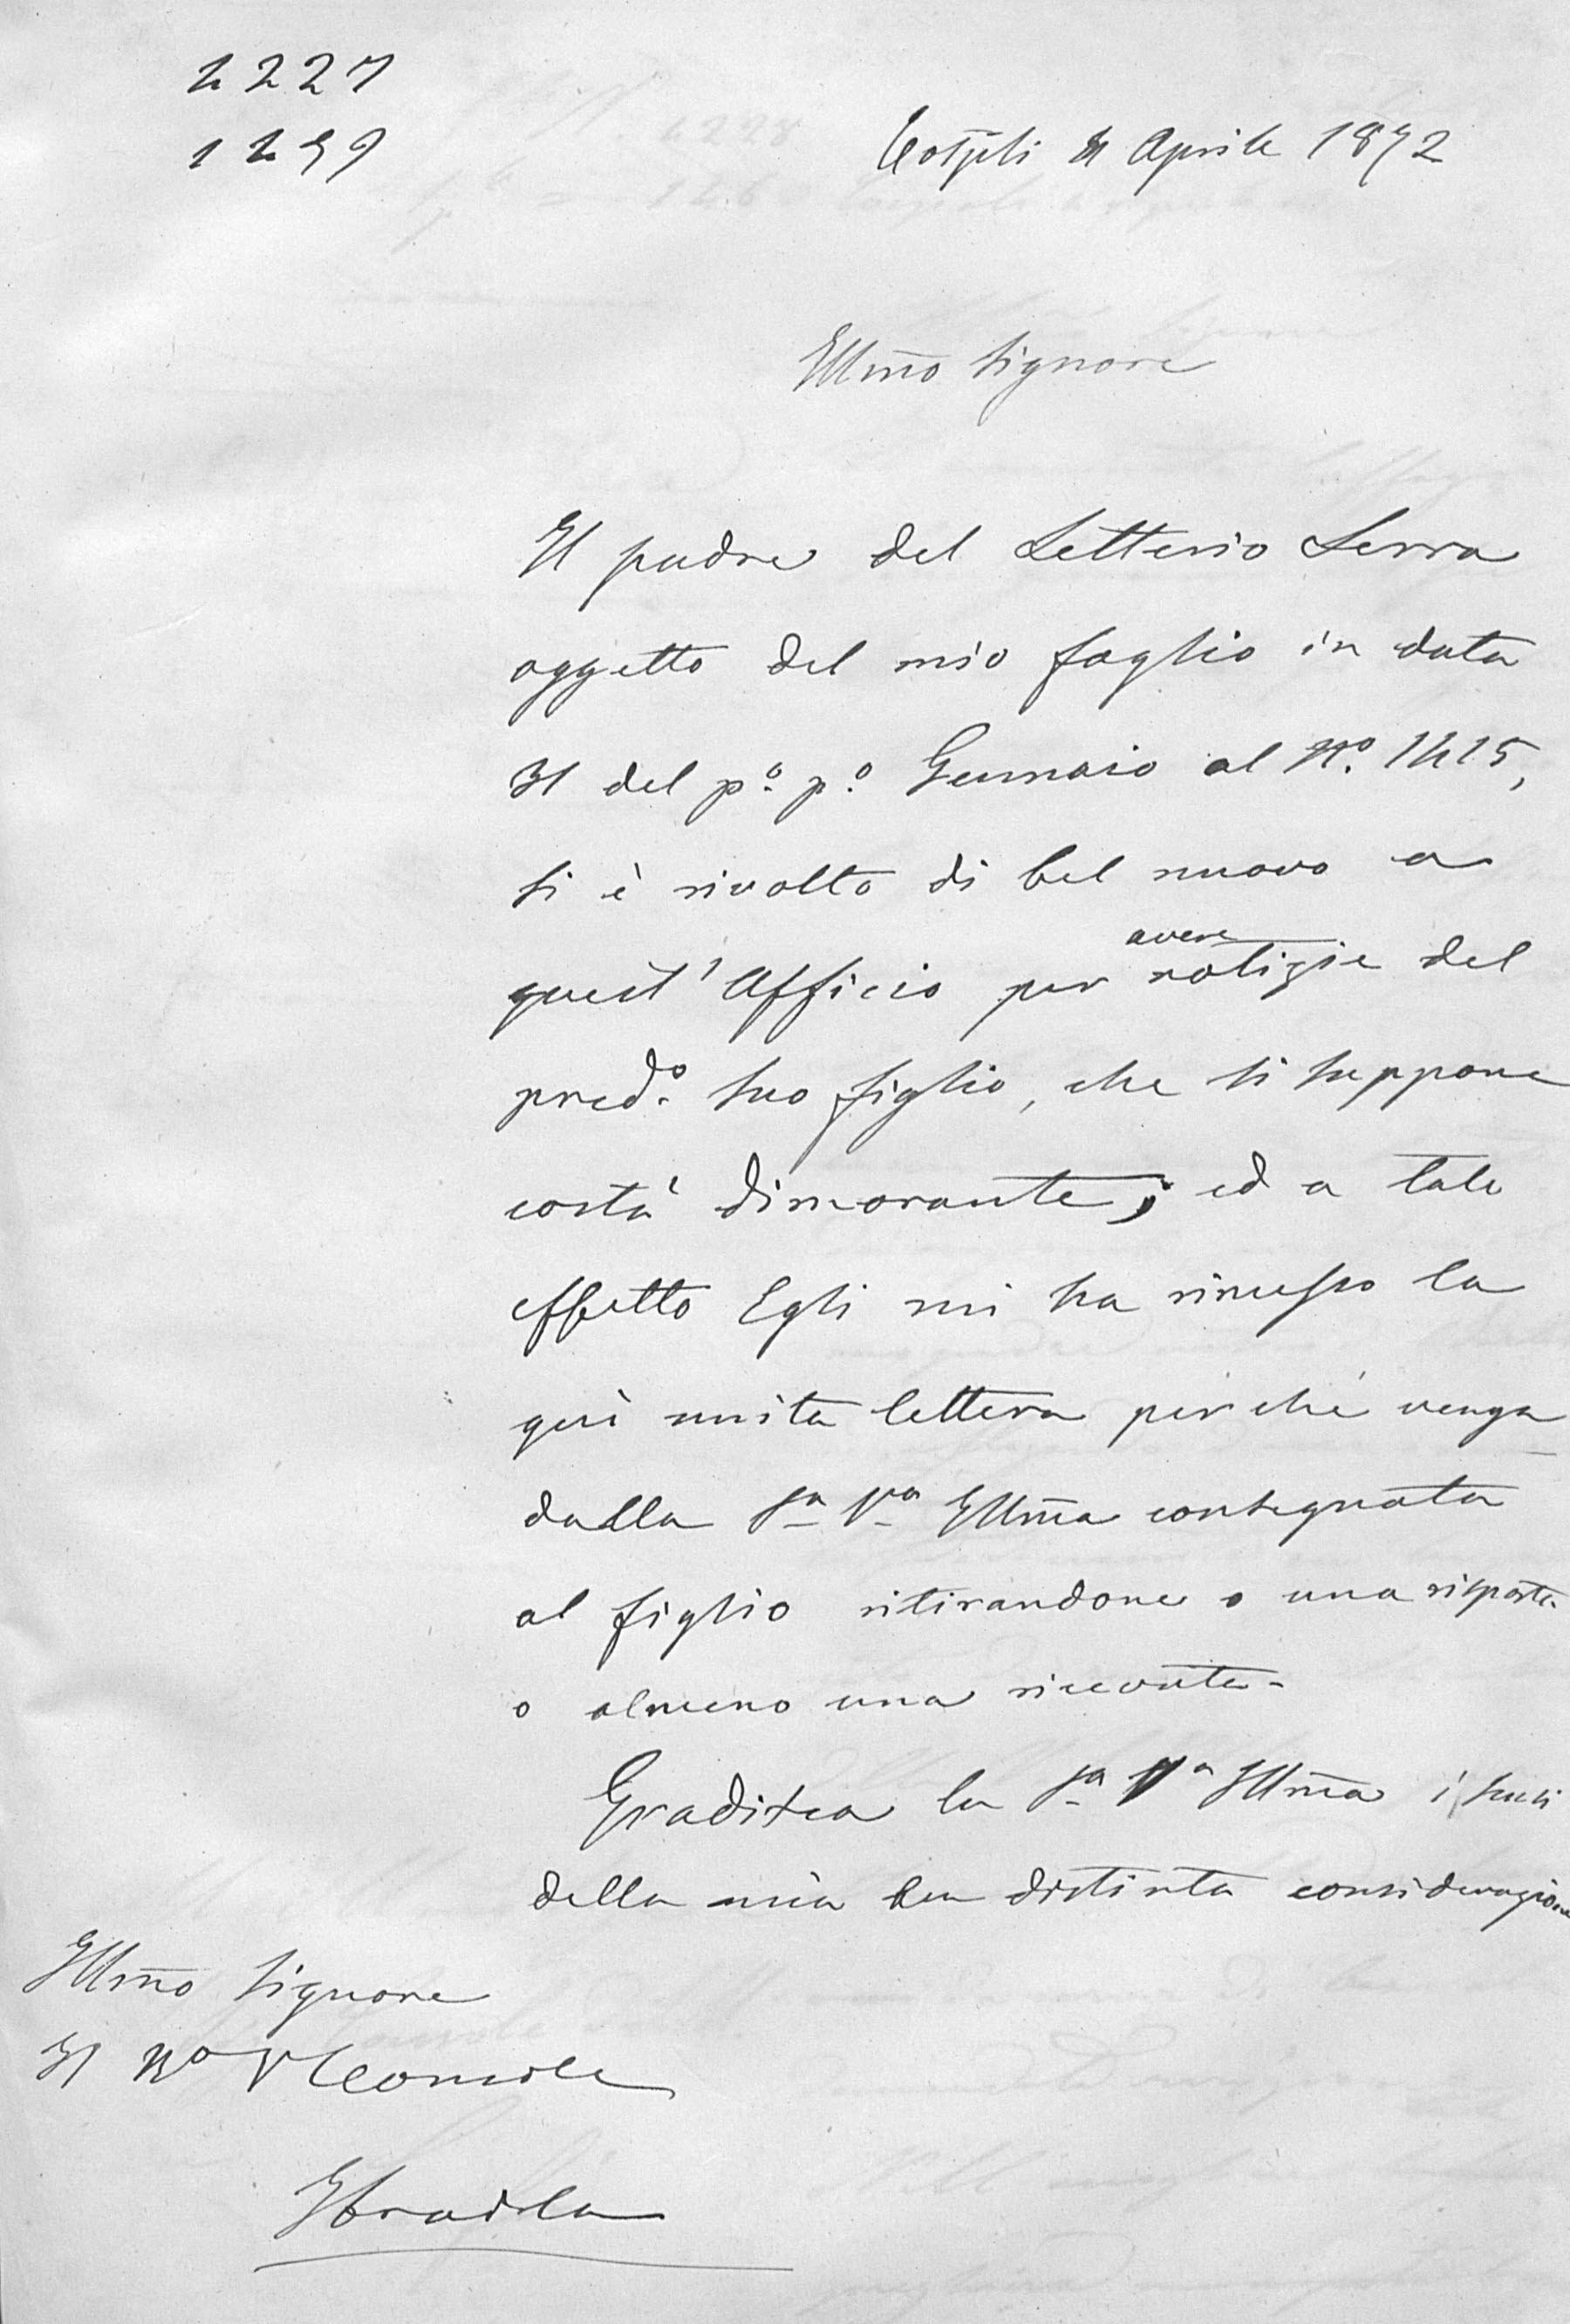 2227
1259
Costpli Aprile 1872
Illm̃o Signore
Il padre del Letterio Serra
oggetto del mio foglio in data
31 del p.º p.º Gennaio al N.º 1415,
si è rivolto di bel nuovo a
quest'Officio per avere notizie del
pred.º suo figlio, che si suppone
costà dimorante; ed a tale
effetto Egli mi ha rimesso la
quì unita lettera perchè venga
dalla Sa Va Illm̃a consegnata
al figlio ritirandone o una risposta
o almeno una ricevuta.
Gradisca la Sa Va Illm̃a i sensi
della mia ben distinta considerazione
Illm̃o Signore
Il Ro V Console
Ibraila